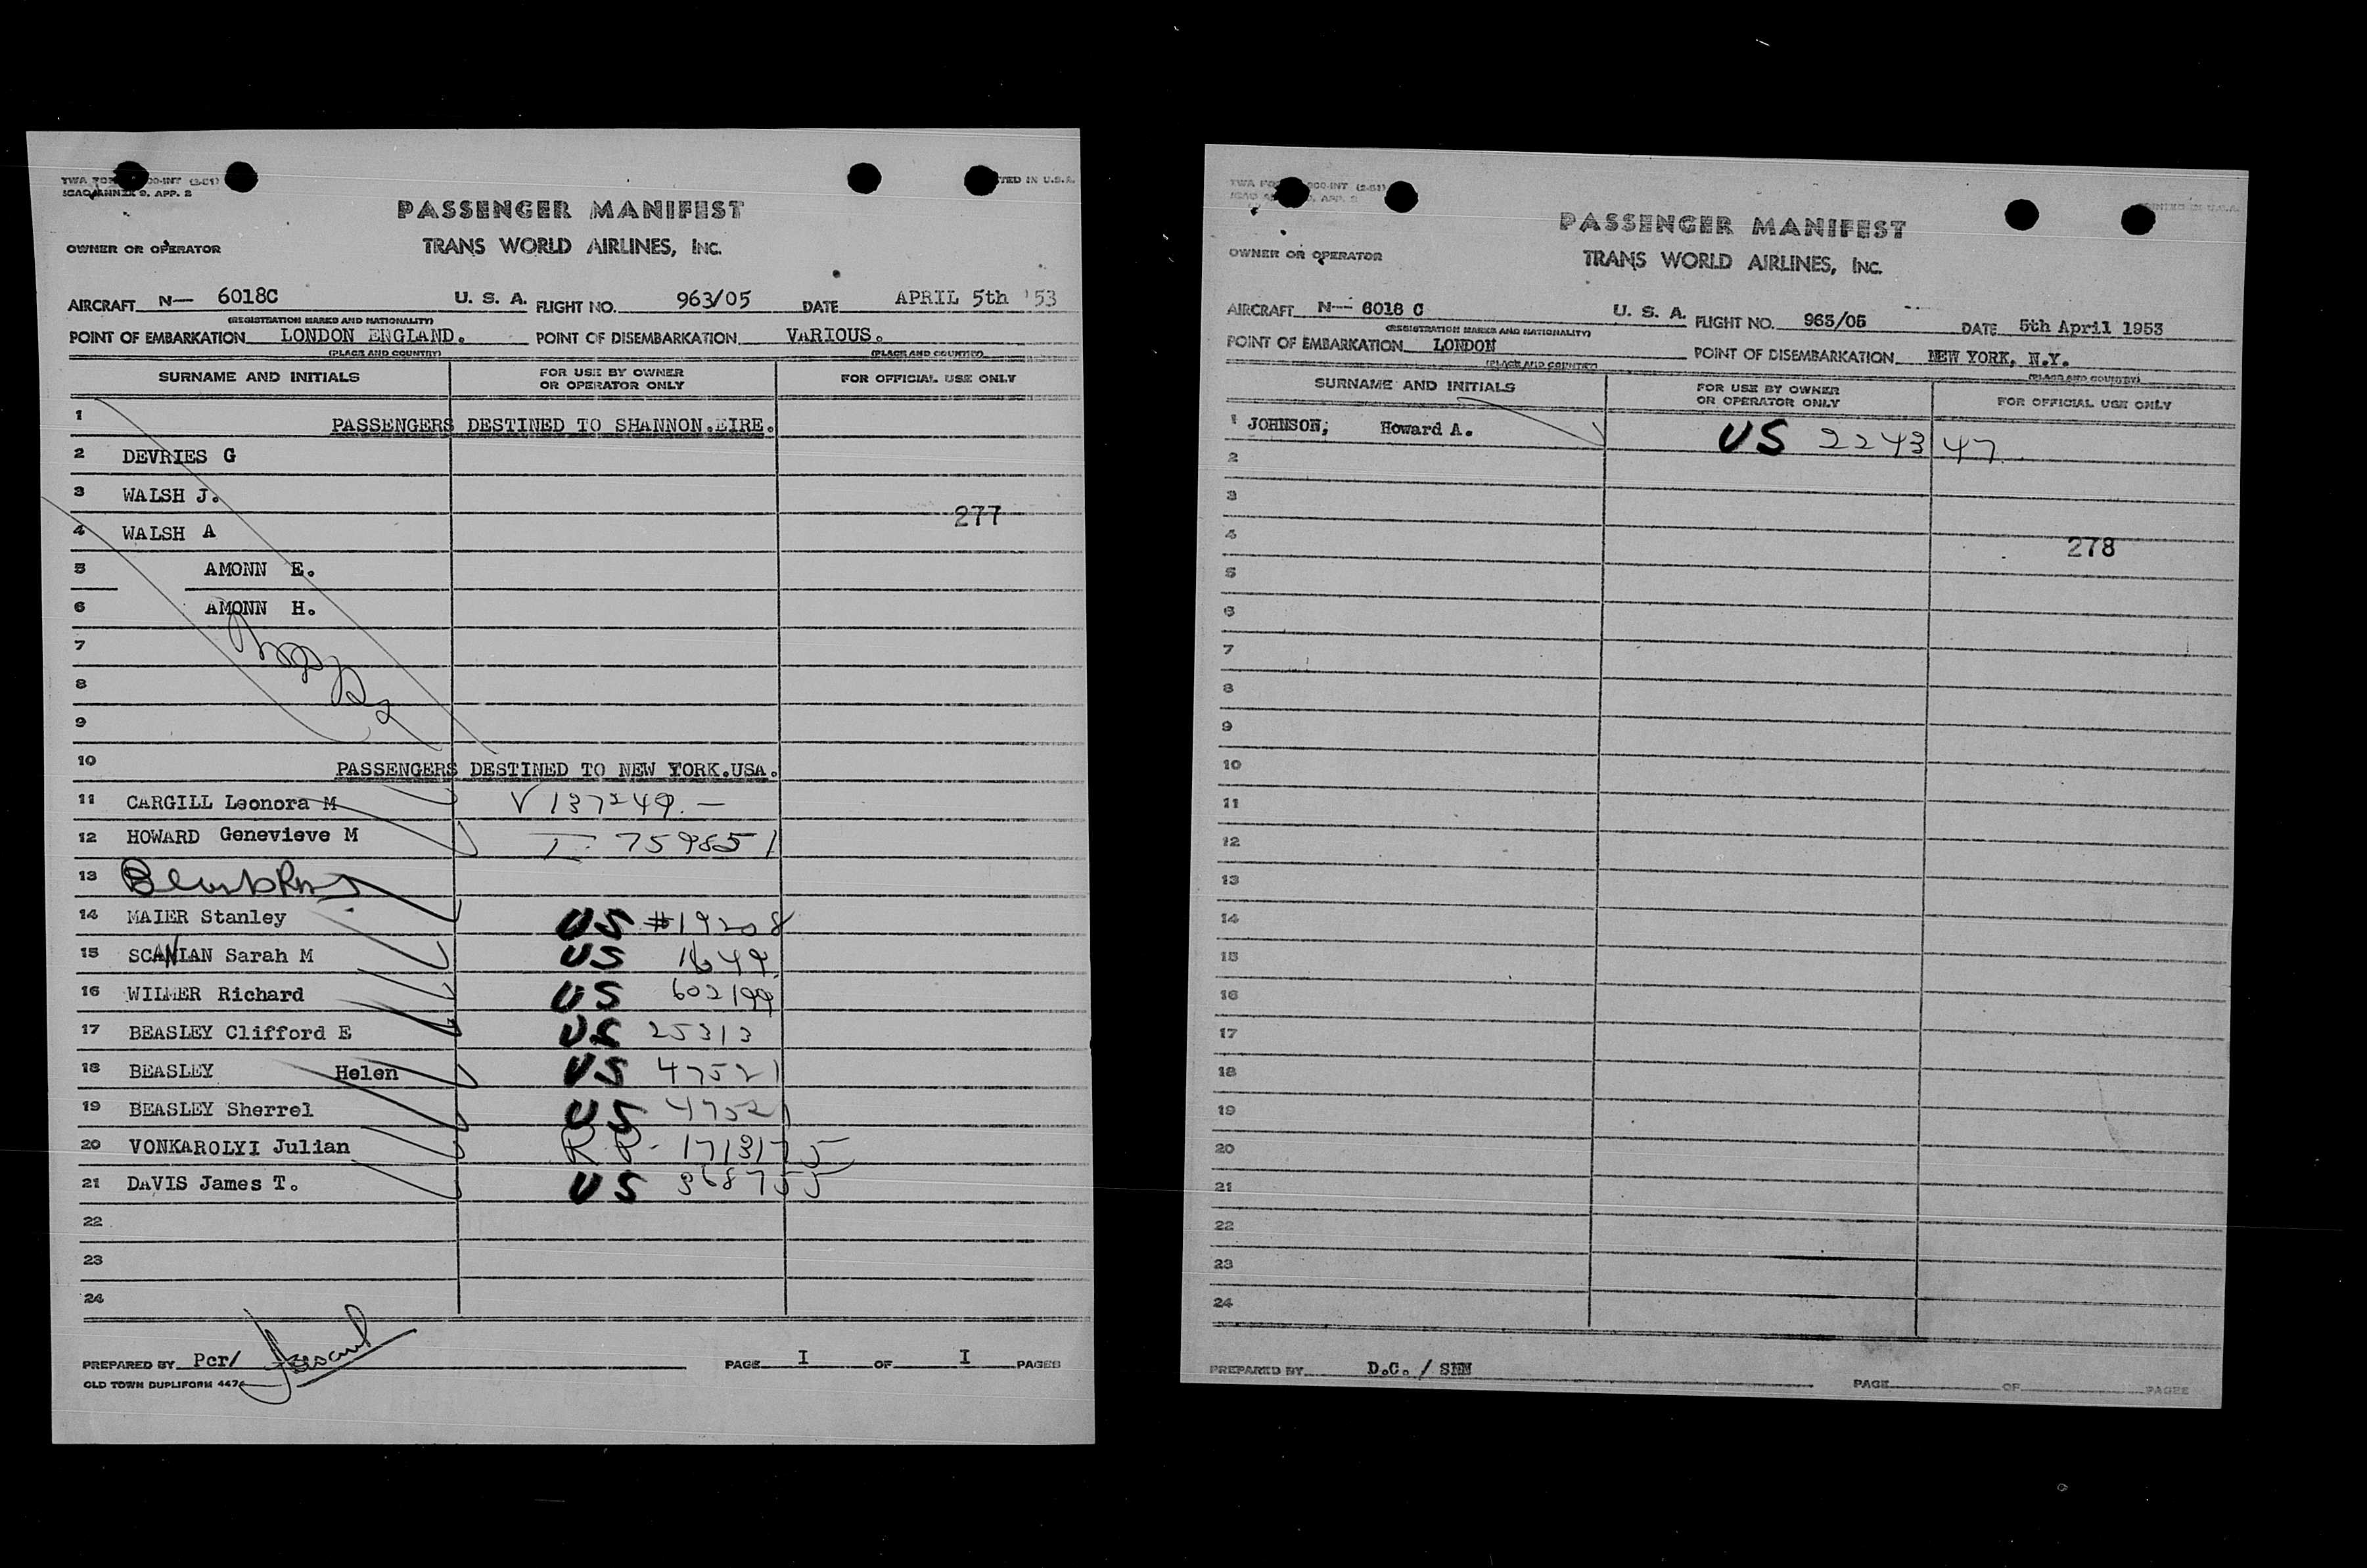 TWA FO 00-INT (2-51)
ICAO ANNEX 9, APP. 2
TED IN U.S.A.
PASSENGER MANIFEST
OWNER OR OPERATOR TRANS WORLD AIRLINES, INC.
AIRCRAFT N— 6018C U. S. A. FLIGHT NO. 963/05 DATE APRIL 5th '53
(REGISTRATION MARKS AND NATIONALITY)
POINT OF EMBARKATION LONDON ENGLAND. POINT OF DISEMBARKATION VARIOUS.
(PLACE AND COUNTRY) (PLACE AND COUNTRY)
SURNAME AND INITIALS FOR USE BY OWNER OR OPERATOR ONLY FOR OFFICIAL USE ONLY
1 PASSENGERS DESTINED TO SHANNON.EIRE.
2 DEVRIES G
3 WALSH J.
277
4 WALSH A
5 AMONN E.
6 AMONN H.
7
8
9
10 PASSENGERS DESTINED TO NEW YORK.USA.
11 CARGILL Leonora M V 137249.—
12 HOWARD Genevieve M I- 759851
13
14 MAIER Stanley US #19208
15 SCANLAN Sarah M US 1649
16 WILMER Richard US 602199
17 BEASLEY Clifford E US 25313
18 BEASLEY Helen US 47521
19 BEASLEY Sherrel US 47521
20 VONKAROLYI Julian R.P- 1713175
21 DAVIS James T. US 368755
22
23
24
PREPARED BY Per/ PAGE I OF I PAGES
OLD TOWN DUPLIFORM 447
TWA FO 000-INT (2-51)
PRINTED IN U.S.A.
PASSENGER MANIFEST
OWNER OR OPERATOR TRANS WORLD AIRLINES, INC.
AIRCRAFT N— 6018 C U. S. A. FLIGHT NO. 963/05 DATE 5th April 1953
(REGISTRATION MARKS AND NATIONALITY)
POINT OF EMBARKATION LONDON POINT OF DISEMBARKATION NEW YORK, N.Y.
(PLACE AND COUNTRY) (PLACE AND COUNTRY)
SURNAME AND INITIALS FOR USE BY OWNER OR OPERATOR ONLY FOR OFFICIAL USE ONLY
1 JOHNSON, Howard A. US 224347
2
3
4 278
5
6
7
8
9
10
11
12
13
14
15
16
17
18
19
20
21
22
23
24
PREPARED BY D.C. / SNN PAGE OF PAGES